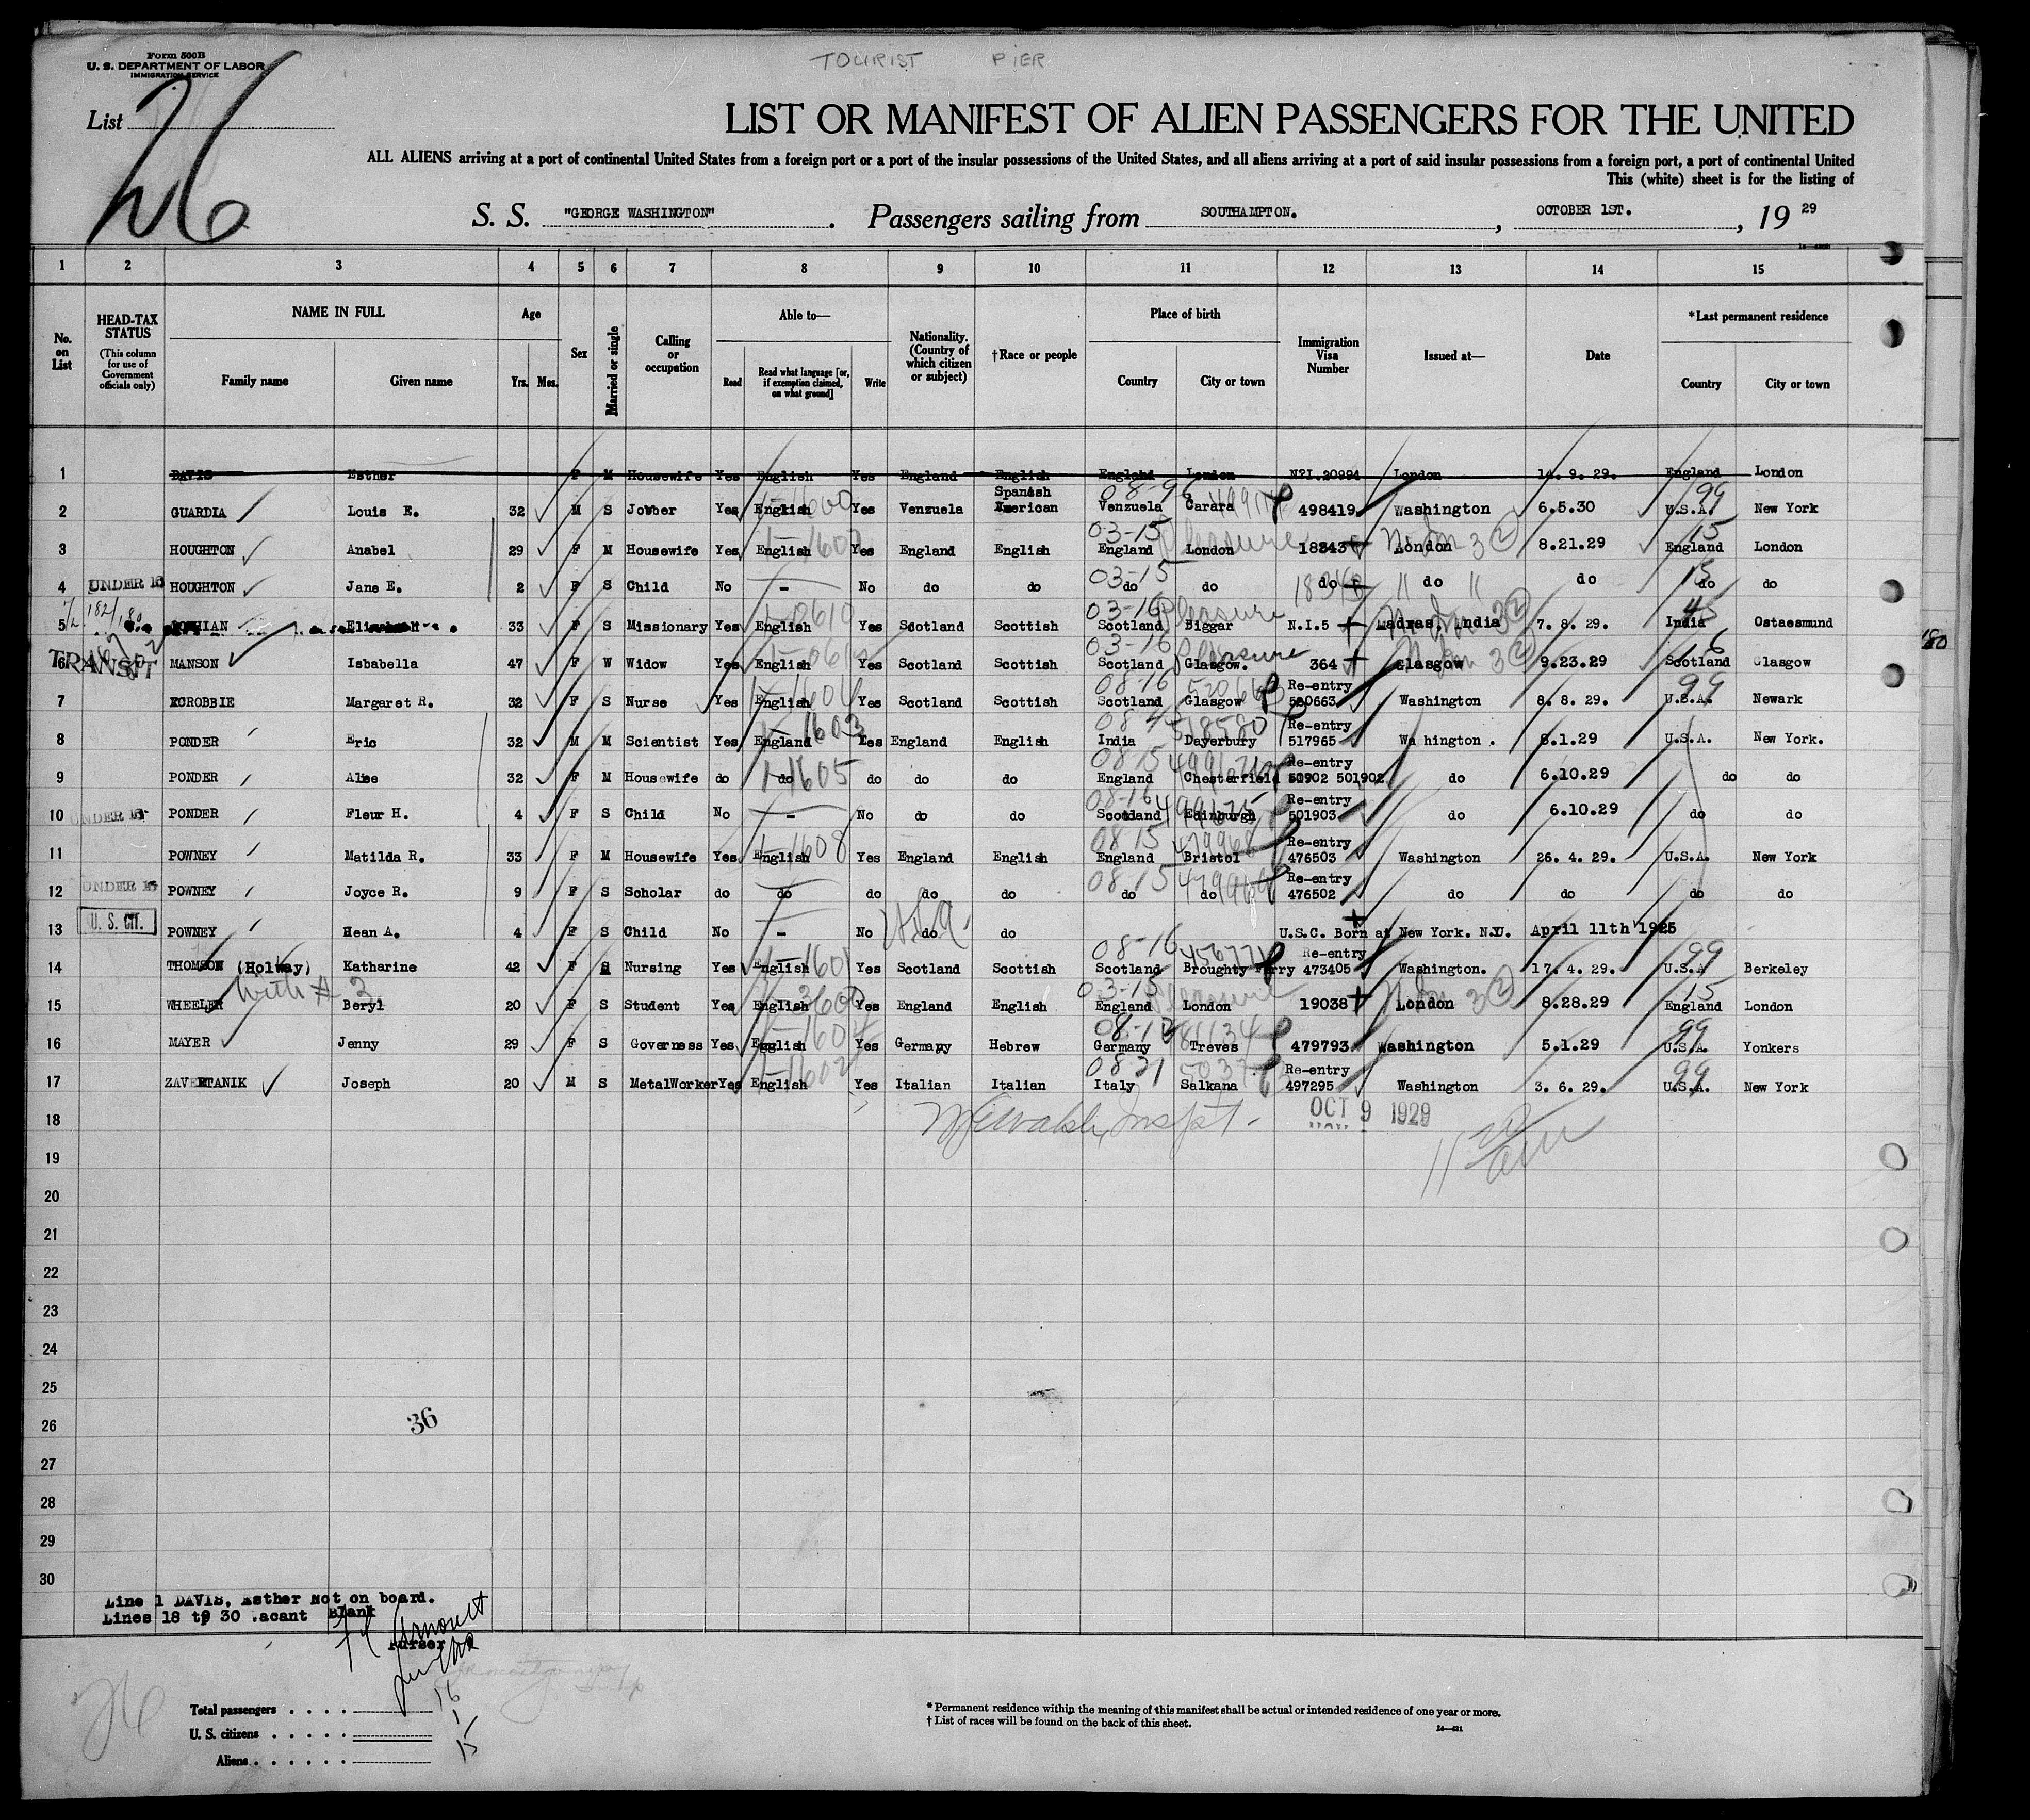 TOURIST PIER
Form 500B
U. S. DEPARTMENT OF LABOR
IMMIGRATION SERVICE
List 26
LIST OR MANIFEST OF ALIEN PASSENGERS FOR THE UNITED
ALL ALIENS arriving at a port of continental United States from a foreign port or a port of the insular possessions of the United States, and all aliens arriving at a port of said insular possessions from a foreign port, a port of continental United
This (white) sheet is for the listing of
S. S. "GEORGE WASHINGTON" . Passengers sailing from SOUTHAMPTON. , OCTOBER 1ST. , 19 29
1 2 3 4 5 6 7 8 9 10 11 12 13 14 15
No. on List
HEAD-TAX STATUS
(This column for use of Government officials only)
NAME IN FULL
Family name Given name
Age
Yrs. Mos.
Sex
Married or single
Calling or occupation
Able to—
Read
Read what language [or, if exemption claimed, on what ground]
Write
Nationality. (Country of which citizen or subject)
†Race or people
Place of birth
Country City or town
Immigration Visa Number
Issued at—
Date
*Last permanent residence
Country City or town
1 DAVIS Esther F M Housewife Yes English Yes England English England London N?I.20994 London 14. 9. 29. England London
2 GUARDIA Louis E. 32 M S Jobber Yes English Yes Venzuela Spanish American Venzuela Carara 498419 Washington 6.5.30 U.S.A. New York
08-96 99
3 HOUGHTON Anabel 29 F M Housewife Yes English Yes England English England London 18343 London 8.21.29 England London
03-15 Pleasure 15
4 UNDER 16 HOUGHTON Jane E. 2 F S Child No - No do do do do do do do do do
03-15 15
5 33 F S Missionary Yes English Yes Scotland Scottish Scotland Biggar N.I.5 Madras, India 7. 8. 29. India Ostaesmund
03-16 Pleasure 45
6 TRANSIT MANSON Isbabella 47 F W Widow Yes English Yes Scotland Scottish Scotland Glasgow. 364 Glasgow 9.23.29 Scotland Glasgow
03-16 Pleasure 16
180
7 Margaret R. 32 F S Nurse Yes English Yes Scotland Scottish Scotland Glasgow Re-entry 520663 Washington 8. 8. 29. U.S.A. Newark
08-16 99
8 PONDER Eric 32 M M Scientist Yes England Yes England English India Dayerbury Re-entry 517965 Wa hington . 8.1.29 U.S.A. New York.
1603
9 PONDER Alise 32 F M Housewife do do do do do England Chesterfield Re-entry 501902 do 6.10.29 do do
1-1605 08-15
10 UNDER 16 PONDER Fleur H. 4 F S Child No - No do do Scotland Edinburgh Re-entry 501903 do 6.10.29 do do
08-16 499675
11 POWNEY Matilda R. 33 F M Housewife Yes English Yes England English England Bristol Re-entry 476503 Washington 26. 4. 29. U.S.A. New York
1-1608 08 15 479968
12 UNDER 16 POWNEY Joyce R. 9 F S Scholar do do do do do do do Re-entry 476502 do do do do
08-15 479969
13 U. S. CIT. POWNEY Hean A. 4 F S Child No - No do do U.S.C. Born at New York. N.Y. April 11th 1925
U.S.A.
14 THOMSON (Holway) Katharine 42 F S Nursing Yes English Yes Scotland Scottish Scotland Broughty Ferry Re-entry 473405 Washington. 17. 4. 29. U.S.A Berkeley
08-16 99
with # 3
15 WHEELER Beryl 20 F S Student Yes English Yes England English England London 19038 London 8.28.29 England London
03-15 Pleasure 15
16 MAYER Jenny 29 F S Governess Yes English Yes Germany Hebrew Germany Treves 479793 Washington 5.1.29 U.S.A. Yonkers
08-12 99
17 Joseph 20 M S MetalWorker Yes English Yes Italian Italian Italy Salkana Re-entry 497295 Washington 3. 6. 29. U.S.A. New York
08-21 99
18
Walsh, Inspt.
OCT 9 1929
19
20
21
22
23
24
25
26
36
27
28
29
30
Line 1 DAVIS, Esther Not on board.
Lines 18 to 30 .acant Blank
Purser
26
Total passengers . . . . 16
U. S. citizens . . . . . 1
Aliens . . . . . . 15
* Permanent residence within the meaning of this manifest shall be actual or intended residence of one year or more.
† List of races will be found on the back of this sheet.